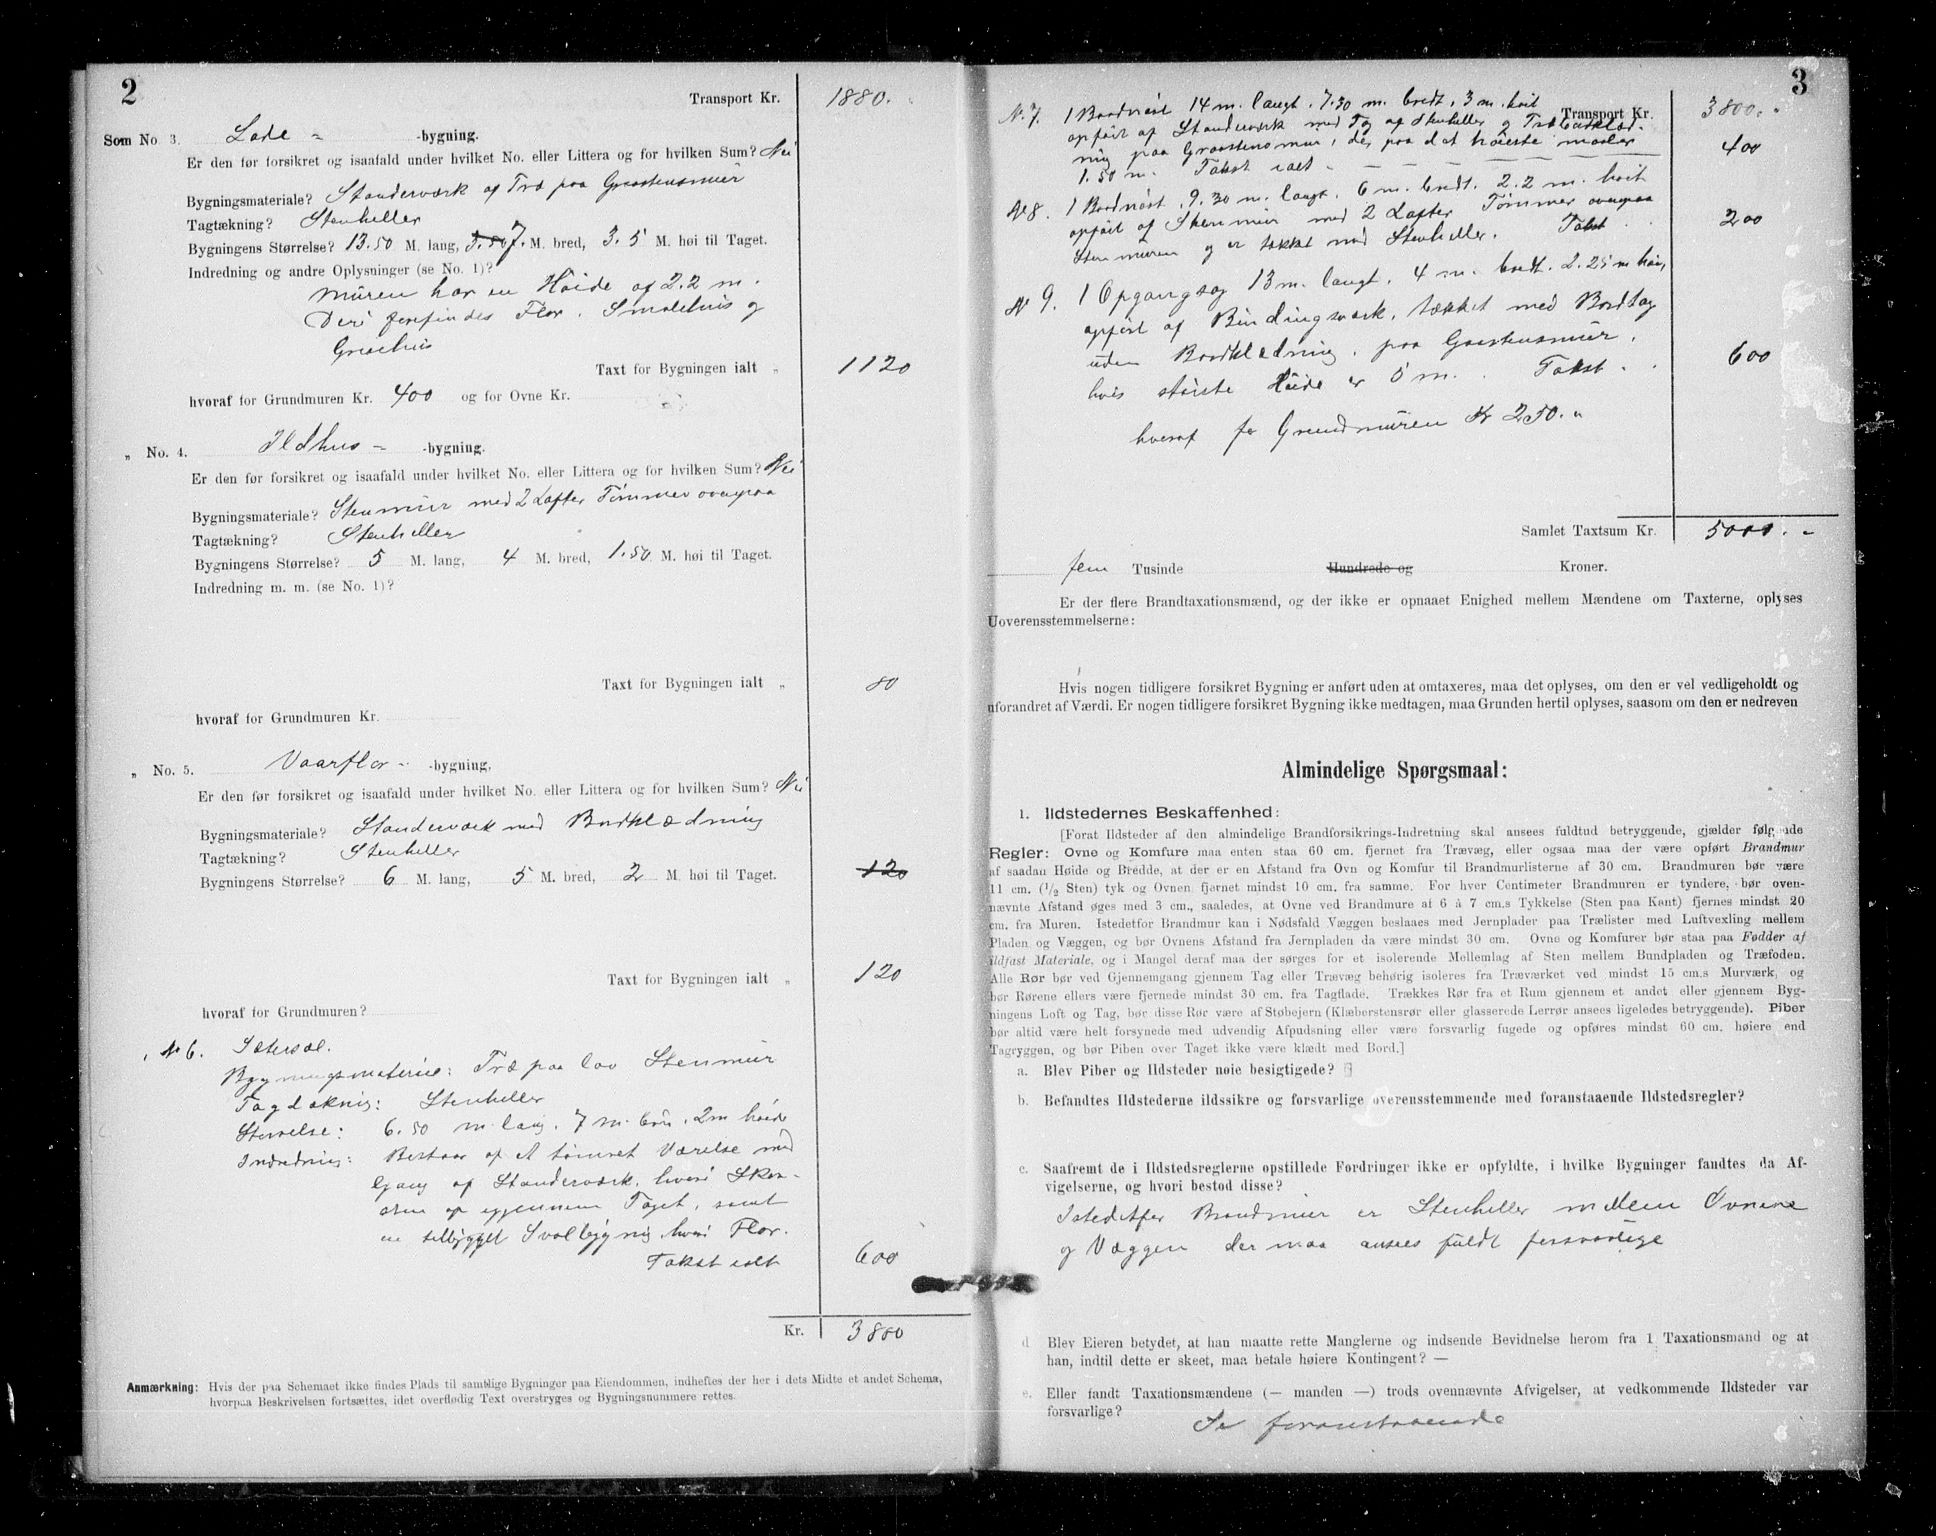 2
Transport Kr. 1880.
Som No 3. Lade -bygning.
Er den før forsikret og isaafald under hvilket No. eller Littera og for hvilken Sum? Nei
Bygningsmateriale? Standerværk af Træ paa Graastensmur
Tagtækning? Stenheller
Bygningens Størrelse? 13.50 M. lang, 7. M. bred, 3.5 M. høi til Taget.
Indredning og andre Oplysninger (se No. 1)?
Muren har en Høide af 2.2 m.
Deri forefindes Flor. Smalehus og
Grisehus
Taxt for Bygningen ialt „ 1120
hvoraf for Grundmuren Kr. 400 og for Ovne Kr.
„ No. 4. Ildhus -bygning.
Er den før forsikret og isaafald under hvilket No. eller Littera og for hvilken Sum? Nei
Bygningsmateriale? Stenmur med 2 Lafter Tømmer ovenpaa
Tagtækning? Stenheller
Bygningens Størrelse? 5 M. lang, 4 M. bred, 1.50 M. høi til Taget.
Indredning m. m. (se No. 1)?
Taxt for Bygningen ialt „ 80
hvoraf for Grundmuren Kr.
„ No. 5. Vaarflor -bygning.
Er den før forsikret og isaafald under hvilket No. eller Littera og for hvilken Sum? Nei
Bygningsmateriale? Standerværk med Bordklædning
Tagtækning? Stenheller
Bygningens Størrelse? 6 M. lang, 5 M. bred, 2 M. høi til Taget. 120
Taxt for Bygningen ialt „ 120
hvoraf for Grundmuren?
„ No 6. Sætersæl.
Bygningsmateriale: Træ paa lav Stenmur
Tagdækning: Stenheller
Størrelse: 6.50 m. lang, 7 m. bred, 2 m høide
Indredning: Bestaar af et tømret Værelse med
Gang af Standerværk, hvori Skor-
sten op igjennem Taget, samt
en tilbygget Svalbygning, hvori Flor.
Takst ialt 600
Kr. 3800
Anmærkning: Hvis der paa Schemaet ikke findes Plads til samtlige Bygninger paa Eiendommen, indheftes der her i dets Midte et andet Schema,
hvorpaa Beskrivelsen fortsættes, idet overflødig Text overstryges og Bygningsnummere rettes.
3
Transport Kr. 3800.
N. 7. 1 Baadnøst 14 m. langt. 7.30 m. bredt, 3 m. høit
opført af Standerværk med Tag af Stenheller og Træbeklæd-
ning paa Graastensmur, der paa det høieste maaler
1.50 m. Takst ialt - 400
No 8. 1 Baadnøst, 9.30 m. langt, 6 m. bredt. 2.2 m. høit
opført af Stenmur med 2 Lafter Tømmer ovenpaa
Stenmuren og er tækket med Stenheller. Takst 200
No 9. 1 Opgangssag 13 m. langt, 4 m. bredt. 2.25 m høi,
opført af Bindingsværk, tækket med Bordtag
uden Bordklædning, paa Graastensmur,
hvis største Høide er 5 m. Takst . 600
hvoraf for Grundmuren Kr 250.
Samlet Taxtsum Kr. 5000.
fem Tusinde Hundrede og Kroner.
Er der flere Brandtaxationsmænd, og der ikke er opnaaet Enighed mellem Mændene om Taxterne, oplyses
Uoverensstemmelserne:
Hvis nogen tidligere forsikret Bygning er anført uden at omtaxeres, maa det oplyses, om den er vel vedligeholdt og
uforandret af Værdi. Er nogen tidligere forsikret Bygning ikke medtagen, maa Grunden hertil oplyses, saasom om den er nedreven
Almindelige Spørgsmaal:
1. Ildstedernes Beskaffenhed:
[Forat Ildsteder af den almindelige Brandforsikrings-Indretning skal ansees fuldtud betryggende, gjælder følgende
Regler: Ovne og Komfure maa enten staa 60 cm. fjernet fra Trævæg, eller ogsaa maa der være opført Brandmur
af saadan Høide og Bredde, at der er en Afstand fra Ovn og Komfur til Brandmurlisterne af 30 cm. Brandmuren bør være
11 cm. (1/2 Sten) tyk og Ovnen fjernet mindst 10 cm. fra samme. For hver Centimeter Brandmuren er tyndere, bør oven-
nævnte Afstand øges med 3 cm., saaledes, at Ovne ved Brandmure af 6 à 7 cm.s Tykkelse (Sten paa Kant) fjernes mindst 20
cm. fra Muren. Istedetfor Brandmur kan i Nødsfald Væggen beslaaes med Jernplader paa Trælister med Luftvexling mellem
Pladen og Væggen, og bør Ovnens Afstand fra Jernpladen da være mindst 30 cm. Ovne og Komfurer bør staa paa Fødder af
ildfast Materiale, og i Mangel deraf maa der sørges for et isolerende Mellemlag af Sten mellem Bundpladen og Træfoden.
Alle Rør bør ved Gjennemgang gjennem Tag eller Trævæg behørig isoleres fra Træværket ved mindst 15 cm.s Murværk, og
bør Rørene ellers være fjernede mindst 30 cm. fra Tagflade. Trækkes Rør fra et Rum gjennem et andet eller gjennem Byg-
ningens Loft og Tag, bør disse Rør være af Støbejern (Klæberstensrør eller glasserede Lerrør ansees ligeledes betryggende). Piber
bør altid være helt forsynede med udvendig Afpudsning eller være forsvarlig fugede og opføres mindst 60 cm. høiere end
Tagryggen, og bør Piben over Taget ikke være klædt med Bord.]
a. Blev Piber og Ildsteder nøie besigtigede?
b. Befandtes Ildstederne ildssikre og forsvarlige overensstemmende med foranstaaende Ildstedsregler?
c. Saafremt de i Ildstedsreglerne opstillede Fordringer ikke er opfyldte, i hvilke Bygninger fandtes da Af-
vigelserne, og hvori bestod disse?
Istedetfor Brandmur er Stenheller mellem Ovnene
og Væggen der maa ansees fuldt forsvarlige
d Blev Eieren betydet, at han maatte rette Manglerne og indsende Bevidnelse herom fra 1 Taxationsmand og at
han, indtil dette er skeet, maa betale høiere Kontingent? —
e. Eller fandt Taxationsmændene (— manden —) trods ovennævnte Afvigelser, at vedkommende Ildsteder var
forsvarlige?
Se foranstaaende